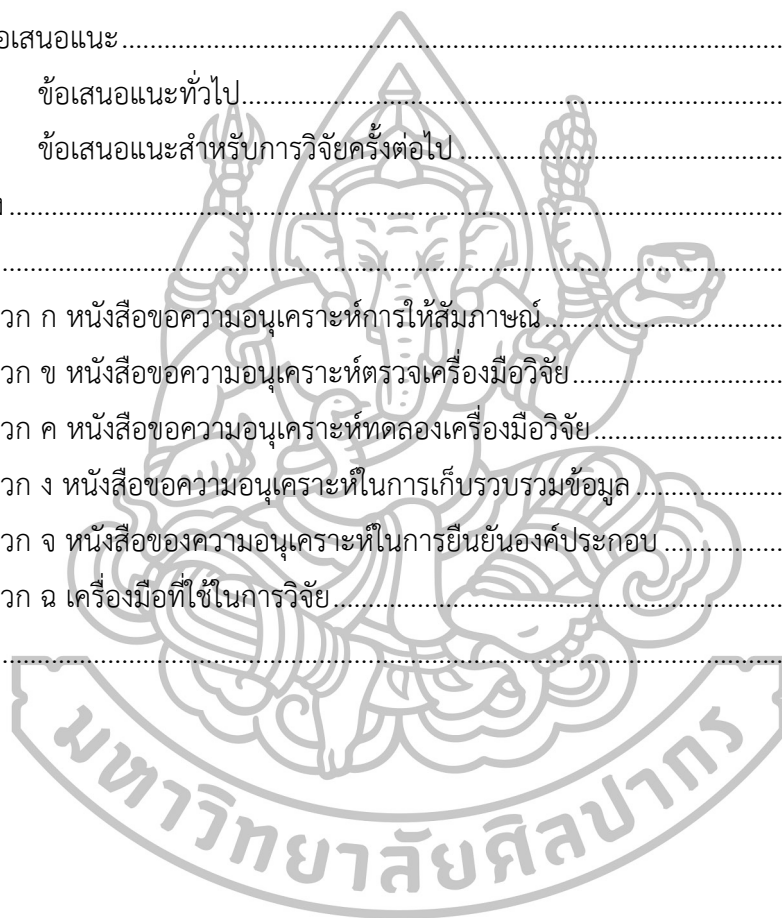 อเสนอแนะ................................................................................................
ข้อเสนอแนะทั่วไป................................................................................
ข้อเสนอแนะสำหรับการวิจัยครั้งต่อไป ..................................................
................................................................................................
................................................................................................
วก ก หนังสือขอความอนุเคราะห์การให้สัมภาษณ์....................................
วก ข หนังสือขอความอนุเคราะห์ตรวจเครื่องมือวิจัย................................
วก ค หนังสือขอความอนุเคราะห์ทดลองเครื่องมือวิจัย.............................
วก ง หนังสือขอความอนุเคราะห์ในการเก็บรวบรวมข้อมูล .......................
วก จ หนังสือของความอนุเคราะห์ในการยืนยันองค์ประกอบ ...................
วก ฉ เครื่องมือที่ใช้ในการวิจัย................................................................
................................................................................................
มหาวิทยาลัยศิลปากร